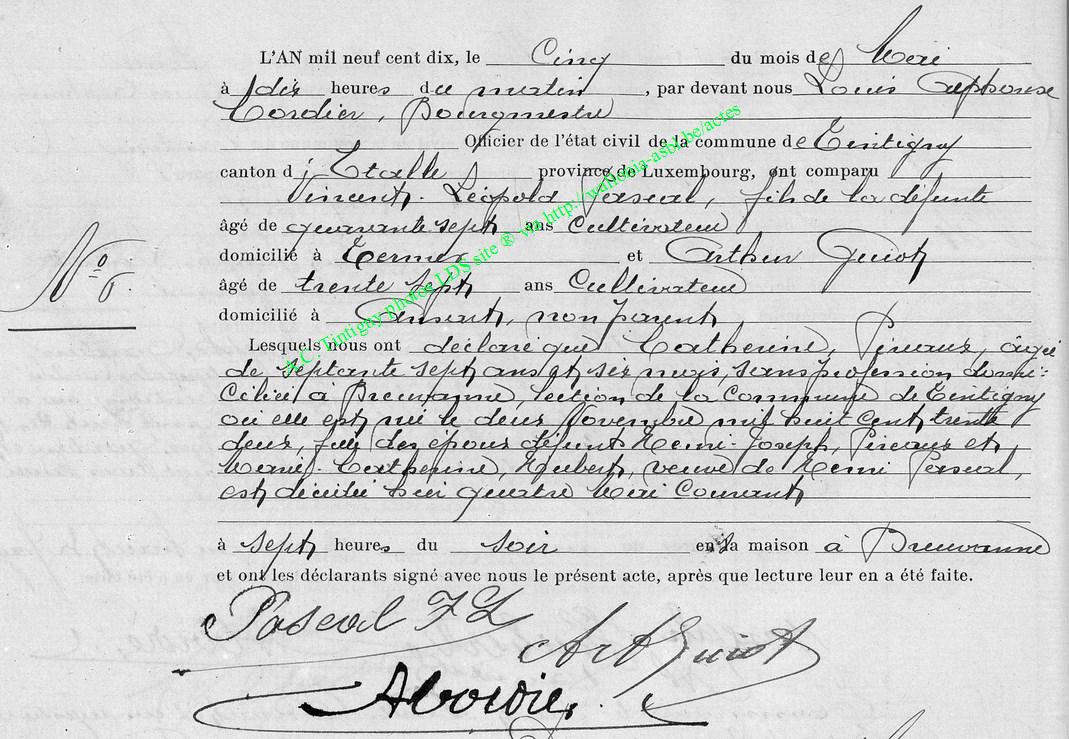 L'AN mil neuf cent dix, le Cinq du mois de Mai
à dix heures du matin, par devant nous Louis Alphonse
Cordier, Bourgmestre
Officier de l'état civil de la commune de Tintigny
canton d'Etalle province de Luxembourg, ont comparu
Vincent Léopold Pascal, fils de la défunte
âgé de quarante sept ans Cultivateur
domicilié à Termes et Arthur Guiot
âgé de trente sept ans Cultivateur
domicilié à Ansart, non parent,
N° 6.
Lesquels nous ont déclaré que Catherine, Pireaux, âgée
de septante sept ans et six mois, sans profession domi-
ciliée à Breuvanne, section de la Commune de Tintigny
où elle est née le deux Novembre mil huit cent trente
deux, fille des époux défunts Henri-Joseph, Pireaux et
Marie-Catherine, Hubert, veuve de Henri Pascal,
est décédée hier quatre Mai Courant
à sept heures du soir en sa maison à Breuvanne
et ont les déclarants signé avec nous le présent acte, après que lecture leur en a été faite.
Pascal
Art Guiot
ACordier
A.C. Tintigny photos LDS site ® via http://wallonia-asbl.be/actes